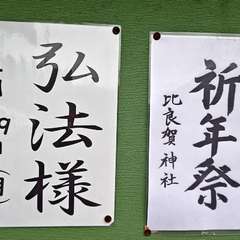 祈年祭
比良賀神社
弘法様